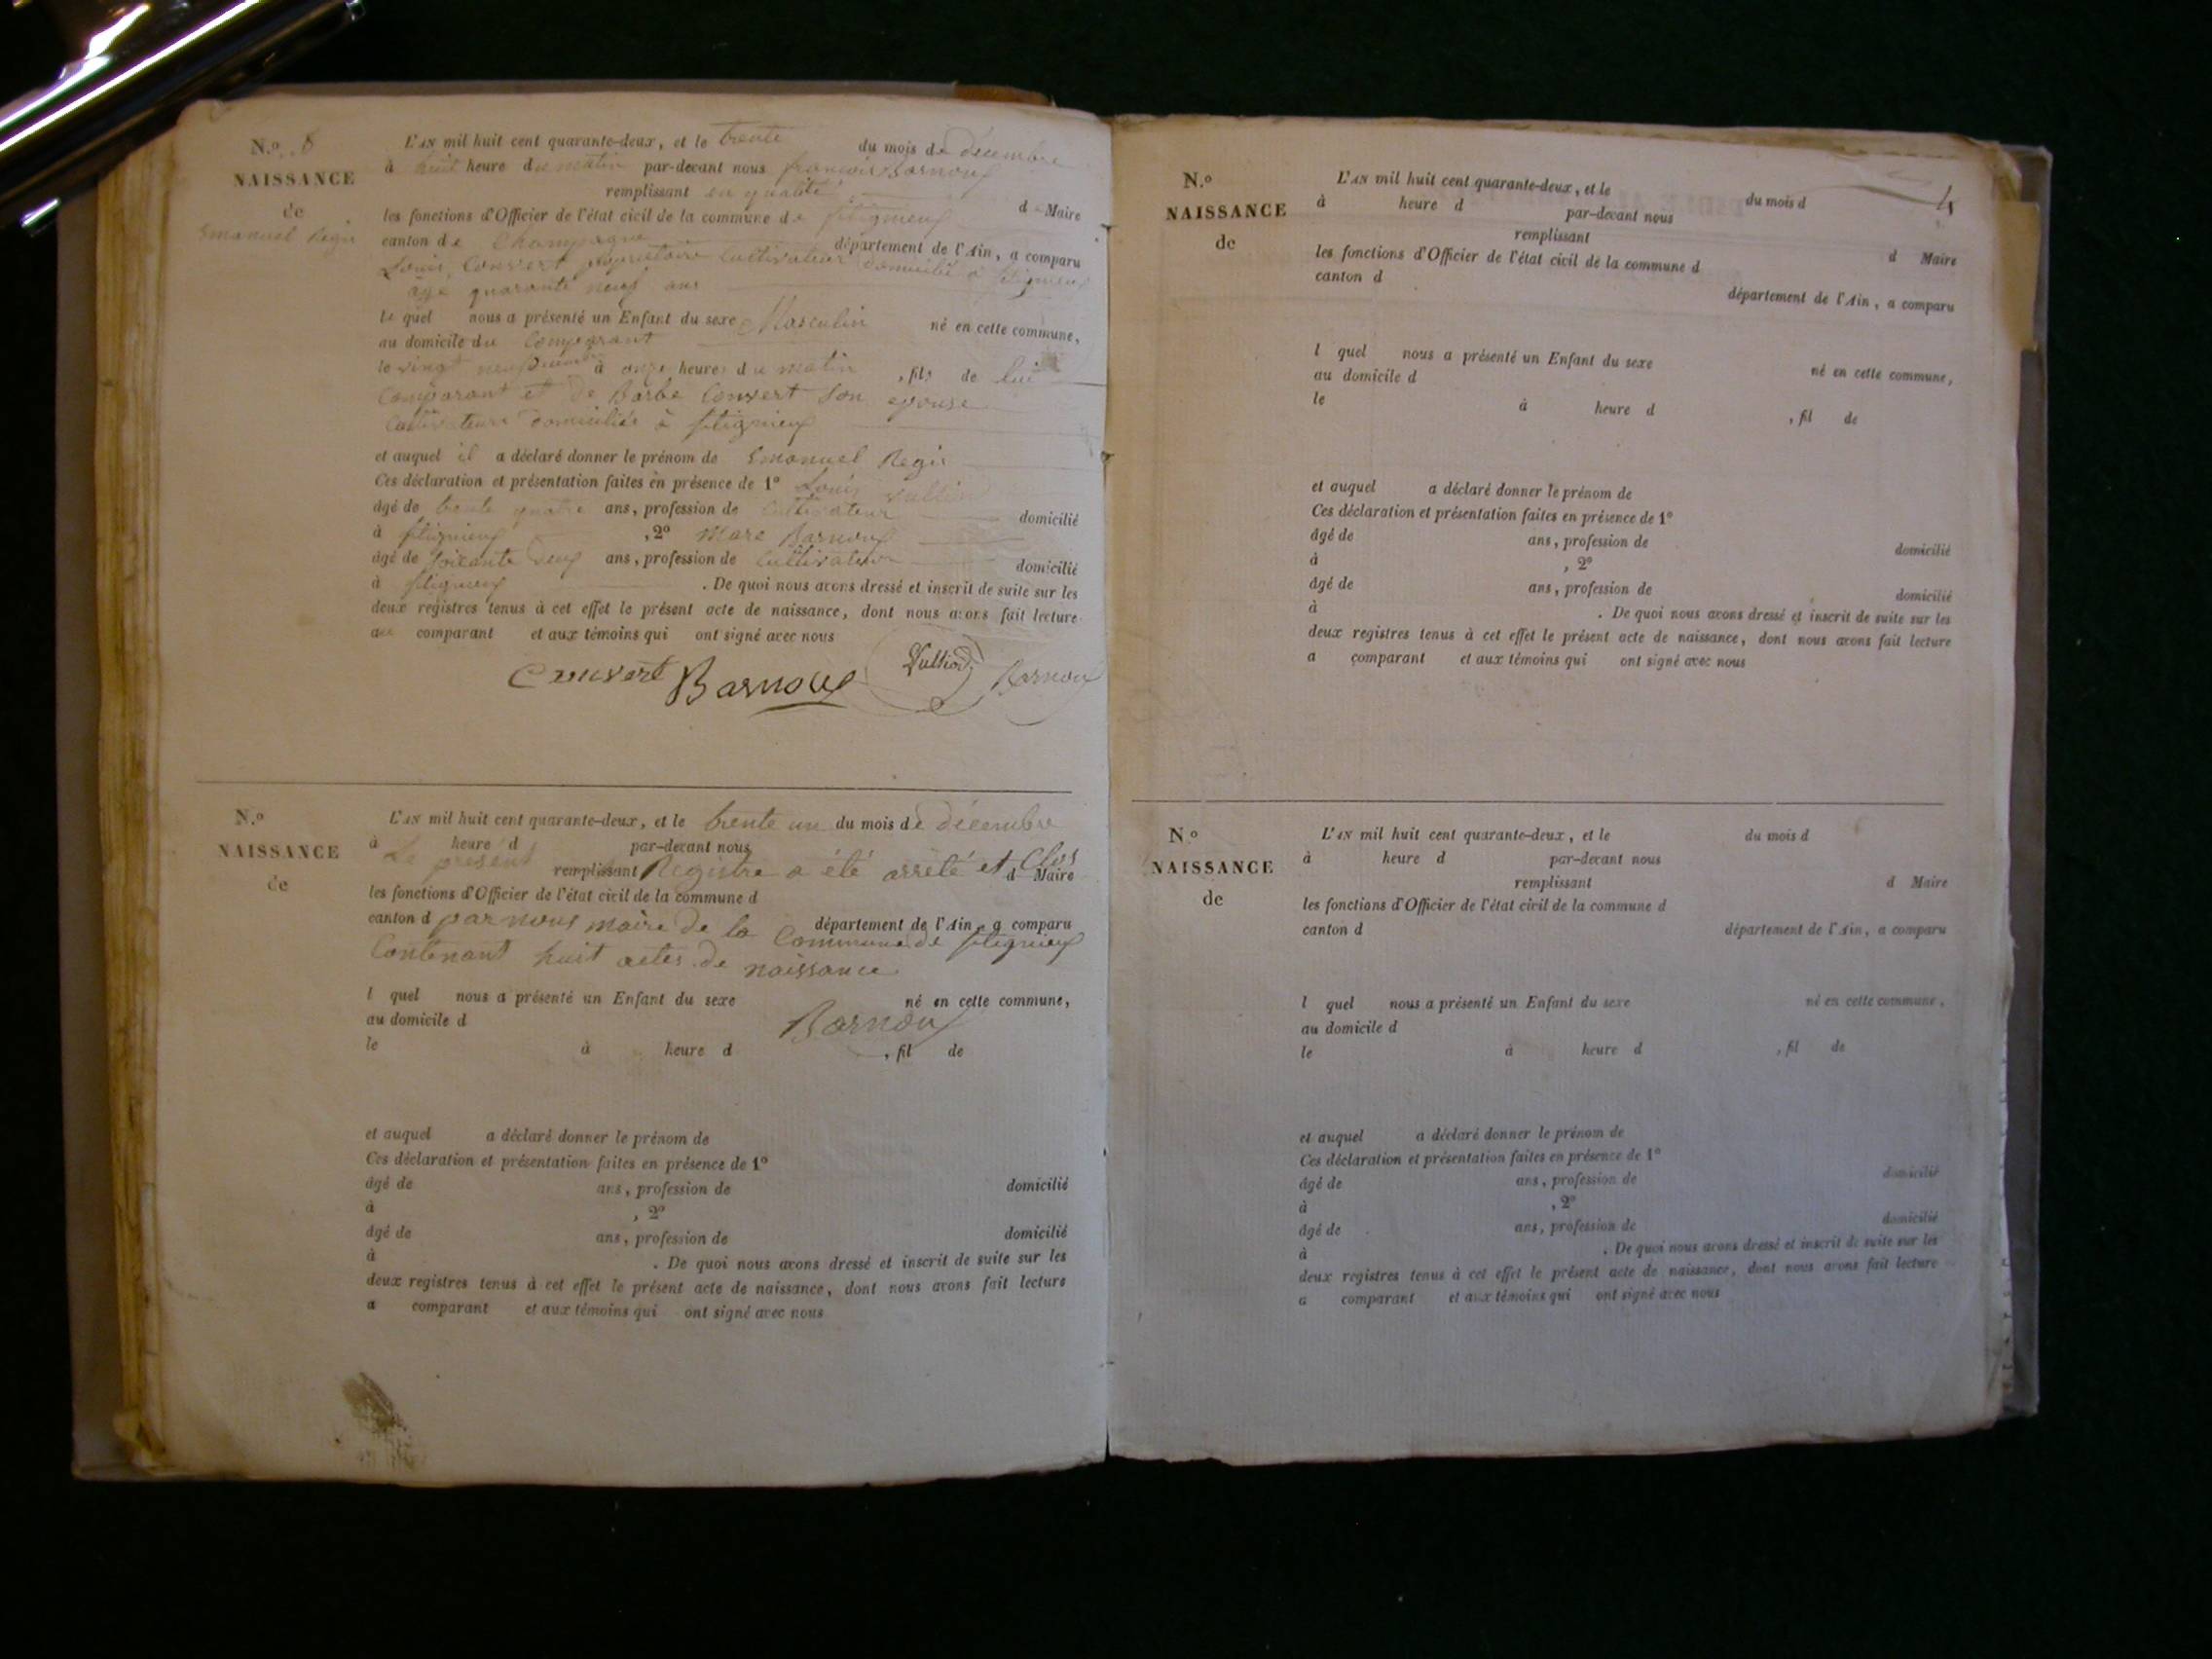 N.o 8
NAISSANCE
de
Emanuel Regis
L'AN mil huit cent quarante-deux, et le trente du mois de décembre
à huit heure du matin par-devant nous françois Barnoux
remplissant en qualité de Maire
les fonctions d'Officier de l'état civil de la commune de
canton de Champagne département de l'Ain, a comparu
Louis Convert propriétaire Cultivateur domicilié à
âge quarante neuf ans
le quel nous a présenté un Enfant du sexe Masculin né en cette commune,
au domicile du Comparant
le vingt neuf à onze heures du matin , fils de lui
Comparant et de Barbe Convert son epouse
Cultivateurs domiciliés à
et auquel il a déclaré donner le prénom de Emanuel Regis
Ces déclaration et présentation faites en présence de 1º Louis Vulliod
âgé de trente quatre ans, profession de Cultivateur domicilié
à , 2º Marc Barnoux
âgé de soixante neuf ans, profession de Cultivateur domicilié
à . De quoi nous avons dressé et inscrit de suite sur les
deux registres tenus à cet effet le présent acte de naissance, dont nous avons fait lecture
au comparant et aux témoins qui ont signé avec nous
Convert Barnoux Vulliod Barnoux
N.o
NAISSANCE
de
L'AN mil huit cent quarante-deux, et le trente un du mois de décembre
à heure d par-devant nous
Le présent remplissant Registre a été arrêté et Clos d Maire
les fonctions d'Officier de l'état civil de la commune d
canton d par nous maire de la Commune de département de l'Ain, a comparu
Contenant huit actes de naissance
l quel nous a présenté un Enfant du sexe né en cette commune,
au domicile d Barnoux
le à heure d , fil de
et auquel a déclaré donner le prénom de
Ces déclaration et présentation faites en présence de 1º
âgé de ans, profession de domicilié
à , 2º
âgé de ans, profession de domicilié
à . De quoi nous avons dressé et inscrit de suite sur les
deux registres tenus à cet effet le présent acte de naissance, dont nous avons fait lecture
a comparant et aux témoins qui ont signé avec nous
4
N.o
NAISSANCE
de
L'AN mil huit cent quarante-deux, et le du mois d
à heure d par-devant nous
remplissant d Maire
les fonctions d'Officier de l'état civil de la commune d
canton d département de l'Ain, a comparu
l quel nous a présenté un Enfant du sexe né en cette commune,
au domicile d
le à heure d , fil de
et auquel a déclaré donner le prénom de
Ces déclaration et présentation faites en présence de 1º
âgé de ans, profession de domicilié
à , 2º
âgé de ans, profession de domicilié
à . De quoi nous avons dressé et inscrit de suite sur les
deux registres tenus à cet effet le présent acte de naissance, dont nous avons fait lecture
a comparant et aux témoins qui ont signé avec nous
N.o
NAISSANCE
de
L'AN mil huit cent quarante-deux, et le du mois d
à heure d par-devant nous
remplissant d Maire
les fonctions d'Officier de l'état civil de la commune d
canton d département de l'Ain, a comparu
l quel nous a présenté un Enfant du sexe né en cette commune,
au domicile d
le à heure d , fil de
et auquel a déclaré donner le prénom de
Ces déclaration et présentation faites en présence de 1º
âgé de ans, profession de domicilié
à , 2º
âgé de ans, profession de domicilié
à . De quoi nous avons dressé et inscrit de suite sur les
deux registres tenus à cet effet le présent acte de naissance, dont nous avons fait lecture
a comparant et aux témoins qui ont signé avec nous